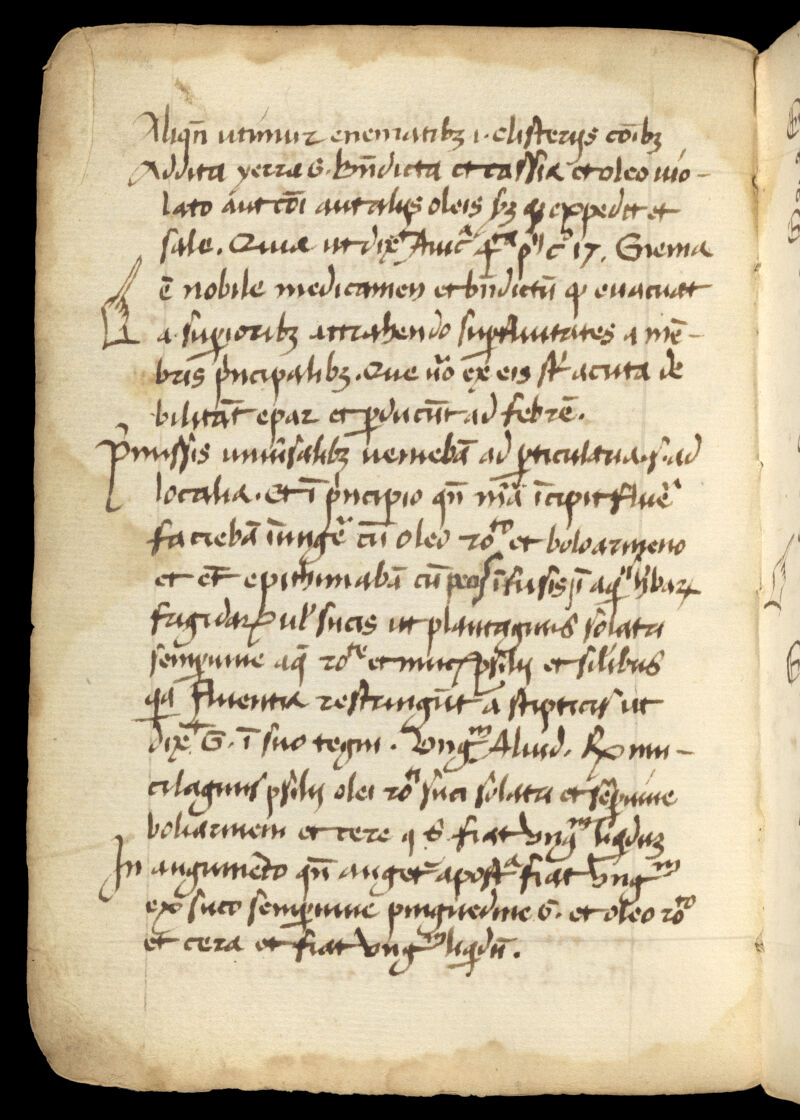 Aliqn̄ utimur enematibꝫ .i. clisteriis cōibꝫ
Addita yerra G. bn̄dicta et cassia et oleo uio-
lato aut cōi aut aliis oleis sꝫ expedit et
sale. Quia ut dixᵗ Auicᵃ qᵃ pⁱ cᵒ 17. Griema
ē nobile medicamen et bn̄dictū ꝙ euacuat
a suꝑioribꝫ attrahendo suꝑfluitates a mē-
bris pͥncipalibꝫ. Que u̅o ex eis st̄ acuta de
bilitāt epar et ꝓducūt ad febrē.
Pͥmissis uniūsalibꝫ ueniebā ad ꝑticularia .s. ad
localia. Et ī pͥncipio qn̄ mā īcipit fluē
faciebā īungē cū oleo roᵗᵒ et boloarmeno
et et̄ epithimabā cū īfusis ī aq̄
frigidaꝝ ul̓ sucis ut plantaginis solatri
semꝑuiue aq̄ roᵗᵉ et muc psilii et silibus
qa fluentia restringūt a stipticis ut
dixᵗ G. ī suo tegni. Vngᵐ Aliud. ℞ mu-
cilaginis psilii olei roᵗⁱ suci solatri et sēꝑuiue
boliarmeni et cere q̄ s. fiat Vngᵐ liqͥduꝫ
In augumēto qn̄ auget᷑ apostᵃ fiat Vngᵐ
ex suco semꝑuiue pinguedine G. et oleo roᵗᵒ
et cera et fiat Vngᵐ liqͥdū.